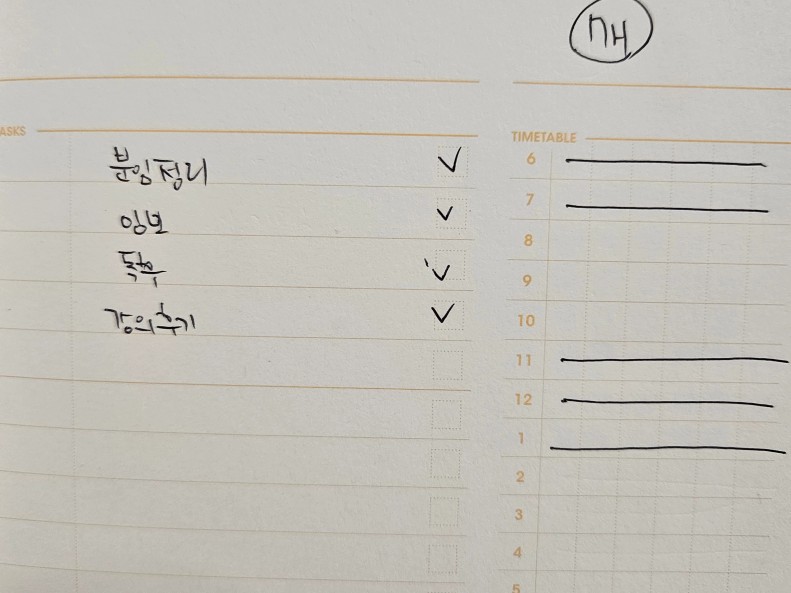 7H
ASKS
분임정리
임보
독후
강의후기
TIMETABLE
6
7
8
9
10
11
12
1
2
3
4
5